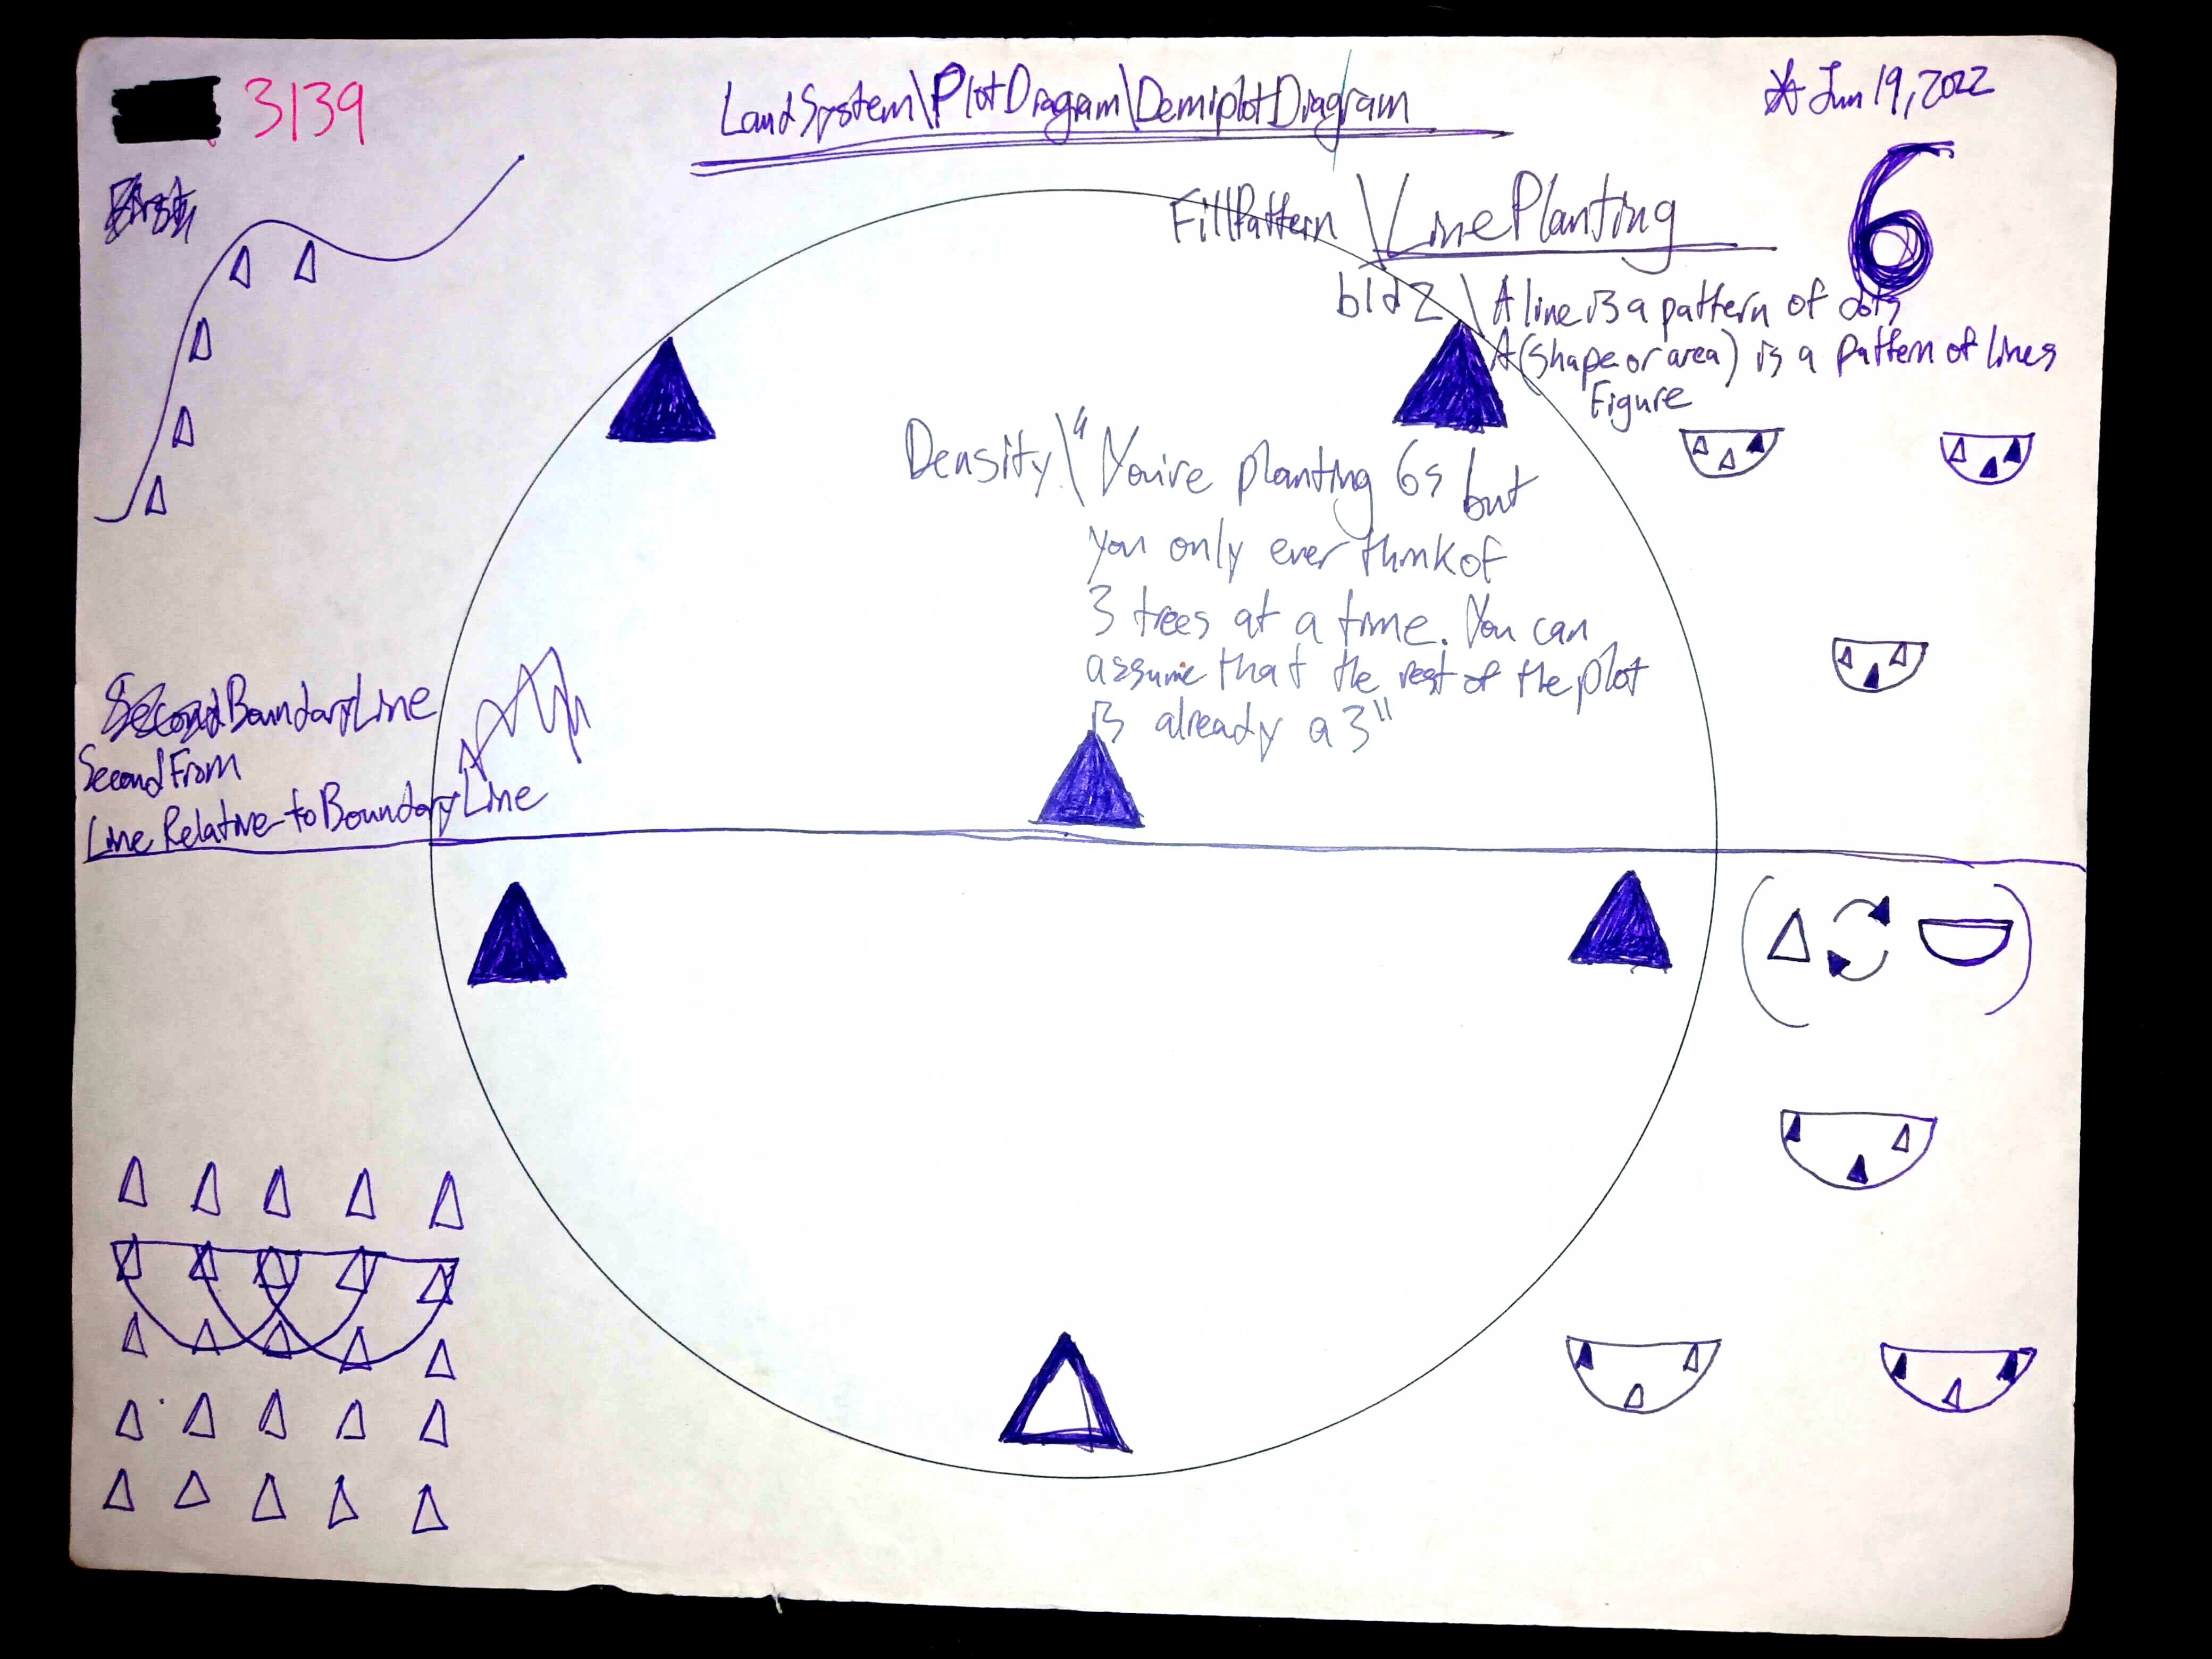 3139
LandSystem\PlotDiagram\DemiplotDiagram
Jun 19, 2022
6
First
FillPattern \LinePlanting
bld2 \ A line is a pattern of dots
A (shape or area) is a pattern of lines
Figure
Density \ "You're planting 6s but
you only ever think of
3 trees at a time. You can
assume that the rest of the plot
is already a 3"
Second BoundaryLine
Second From
Line Relative to Boundary Line